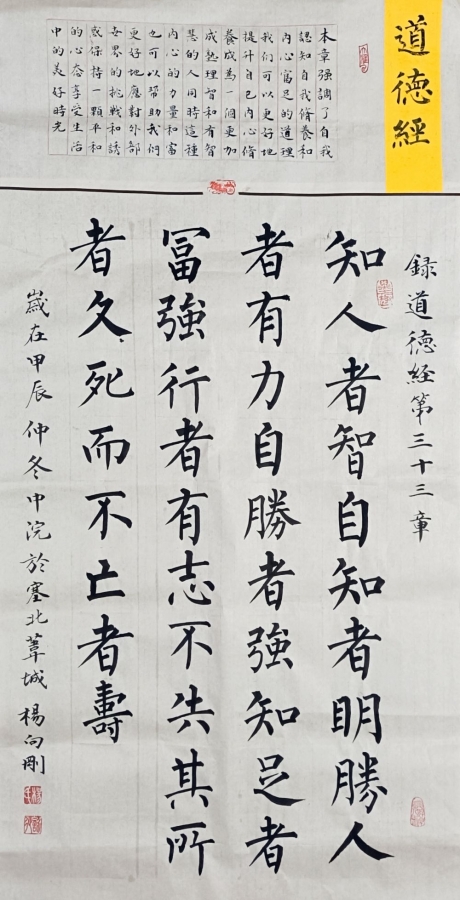 道德經
本章强調了自我
認知自我修養和
内心富足的道理
我們可以更好地
提升自己内心修
養成為一個更加
成熟理智和有智
慧的人同時這種
内心的力量和富
也可以幫助我們
更好地應對外部
世界的挑戰和誘
惑保持一顆平和
的心态享受生活
中的美好時光
録道德経第三十三章
知人者智自知者明勝人
者有力自勝者強知足者
冨強行者有志不失其所
者久死而不亡者壽
歳在甲辰仲冬中浣於塞北葦城楊向剛